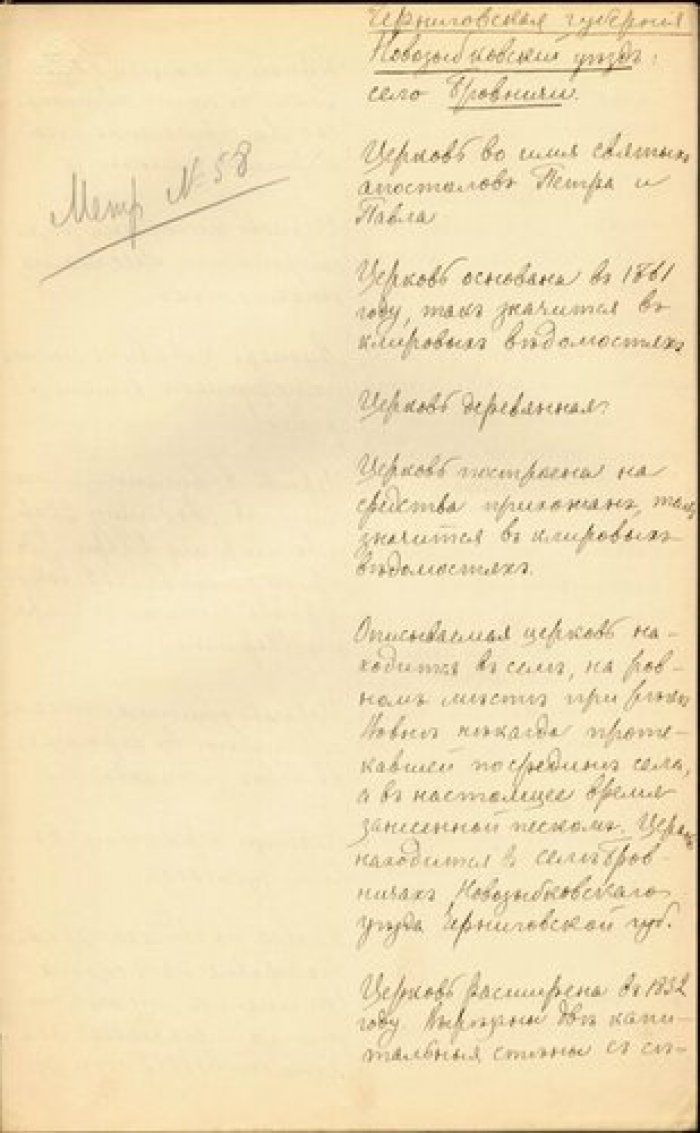 Черниговская губернія
Новозыбковскій уѣздъ
село Бровничи.
Метр № 58
Церковь во имя святыхъ
апостоловъ Петра и
Павла
Церковь основана въ 1861
году, такъ значится въ
клировыхъ вѣдомостяхъ
Церковь деревянная.
Церковь построена на
средства прихожанъ, такъ
значится въ клировыхъ
вѣдомостяхъ.
Описываемая церковь на-
ходится въ селѣ, на ров-
номъ мѣстѣ при рѣчкѣ
нѣкогда проте-
кавшей посрединѣ села,
а въ настоящее время
занесенной пескомъ. Церковь
находится въ селѣ Бров-
ничахъ Новозыбковскаго
уѣзда Черниговской губ.
Церковь расширена въ 1832
году. Вырѣзаны двѣ капи-
тальныя стѣны съ сѣ-